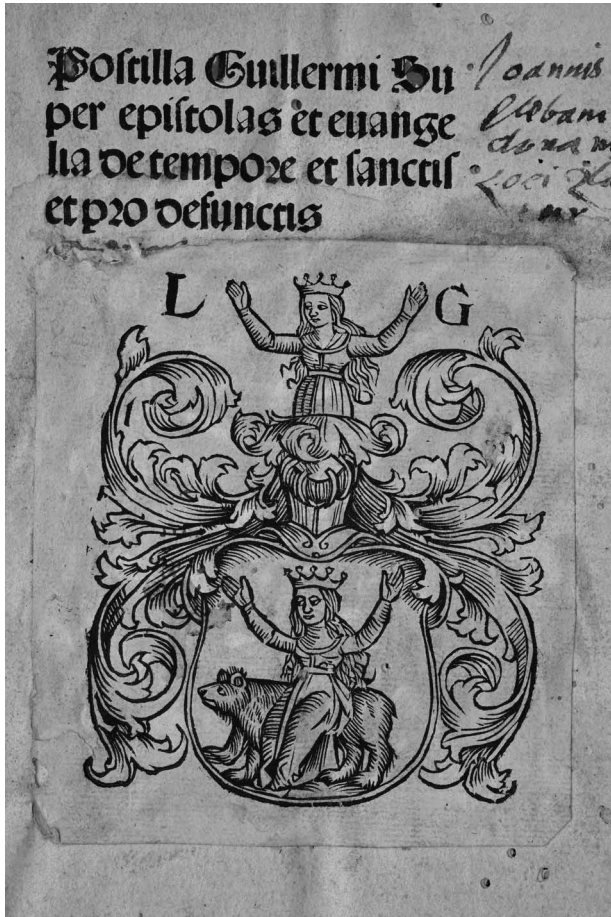 Postilla Guillermi Su
per epistolas et euange
lia de tempore et sanctis
et pro defunctis
Joannis
L G